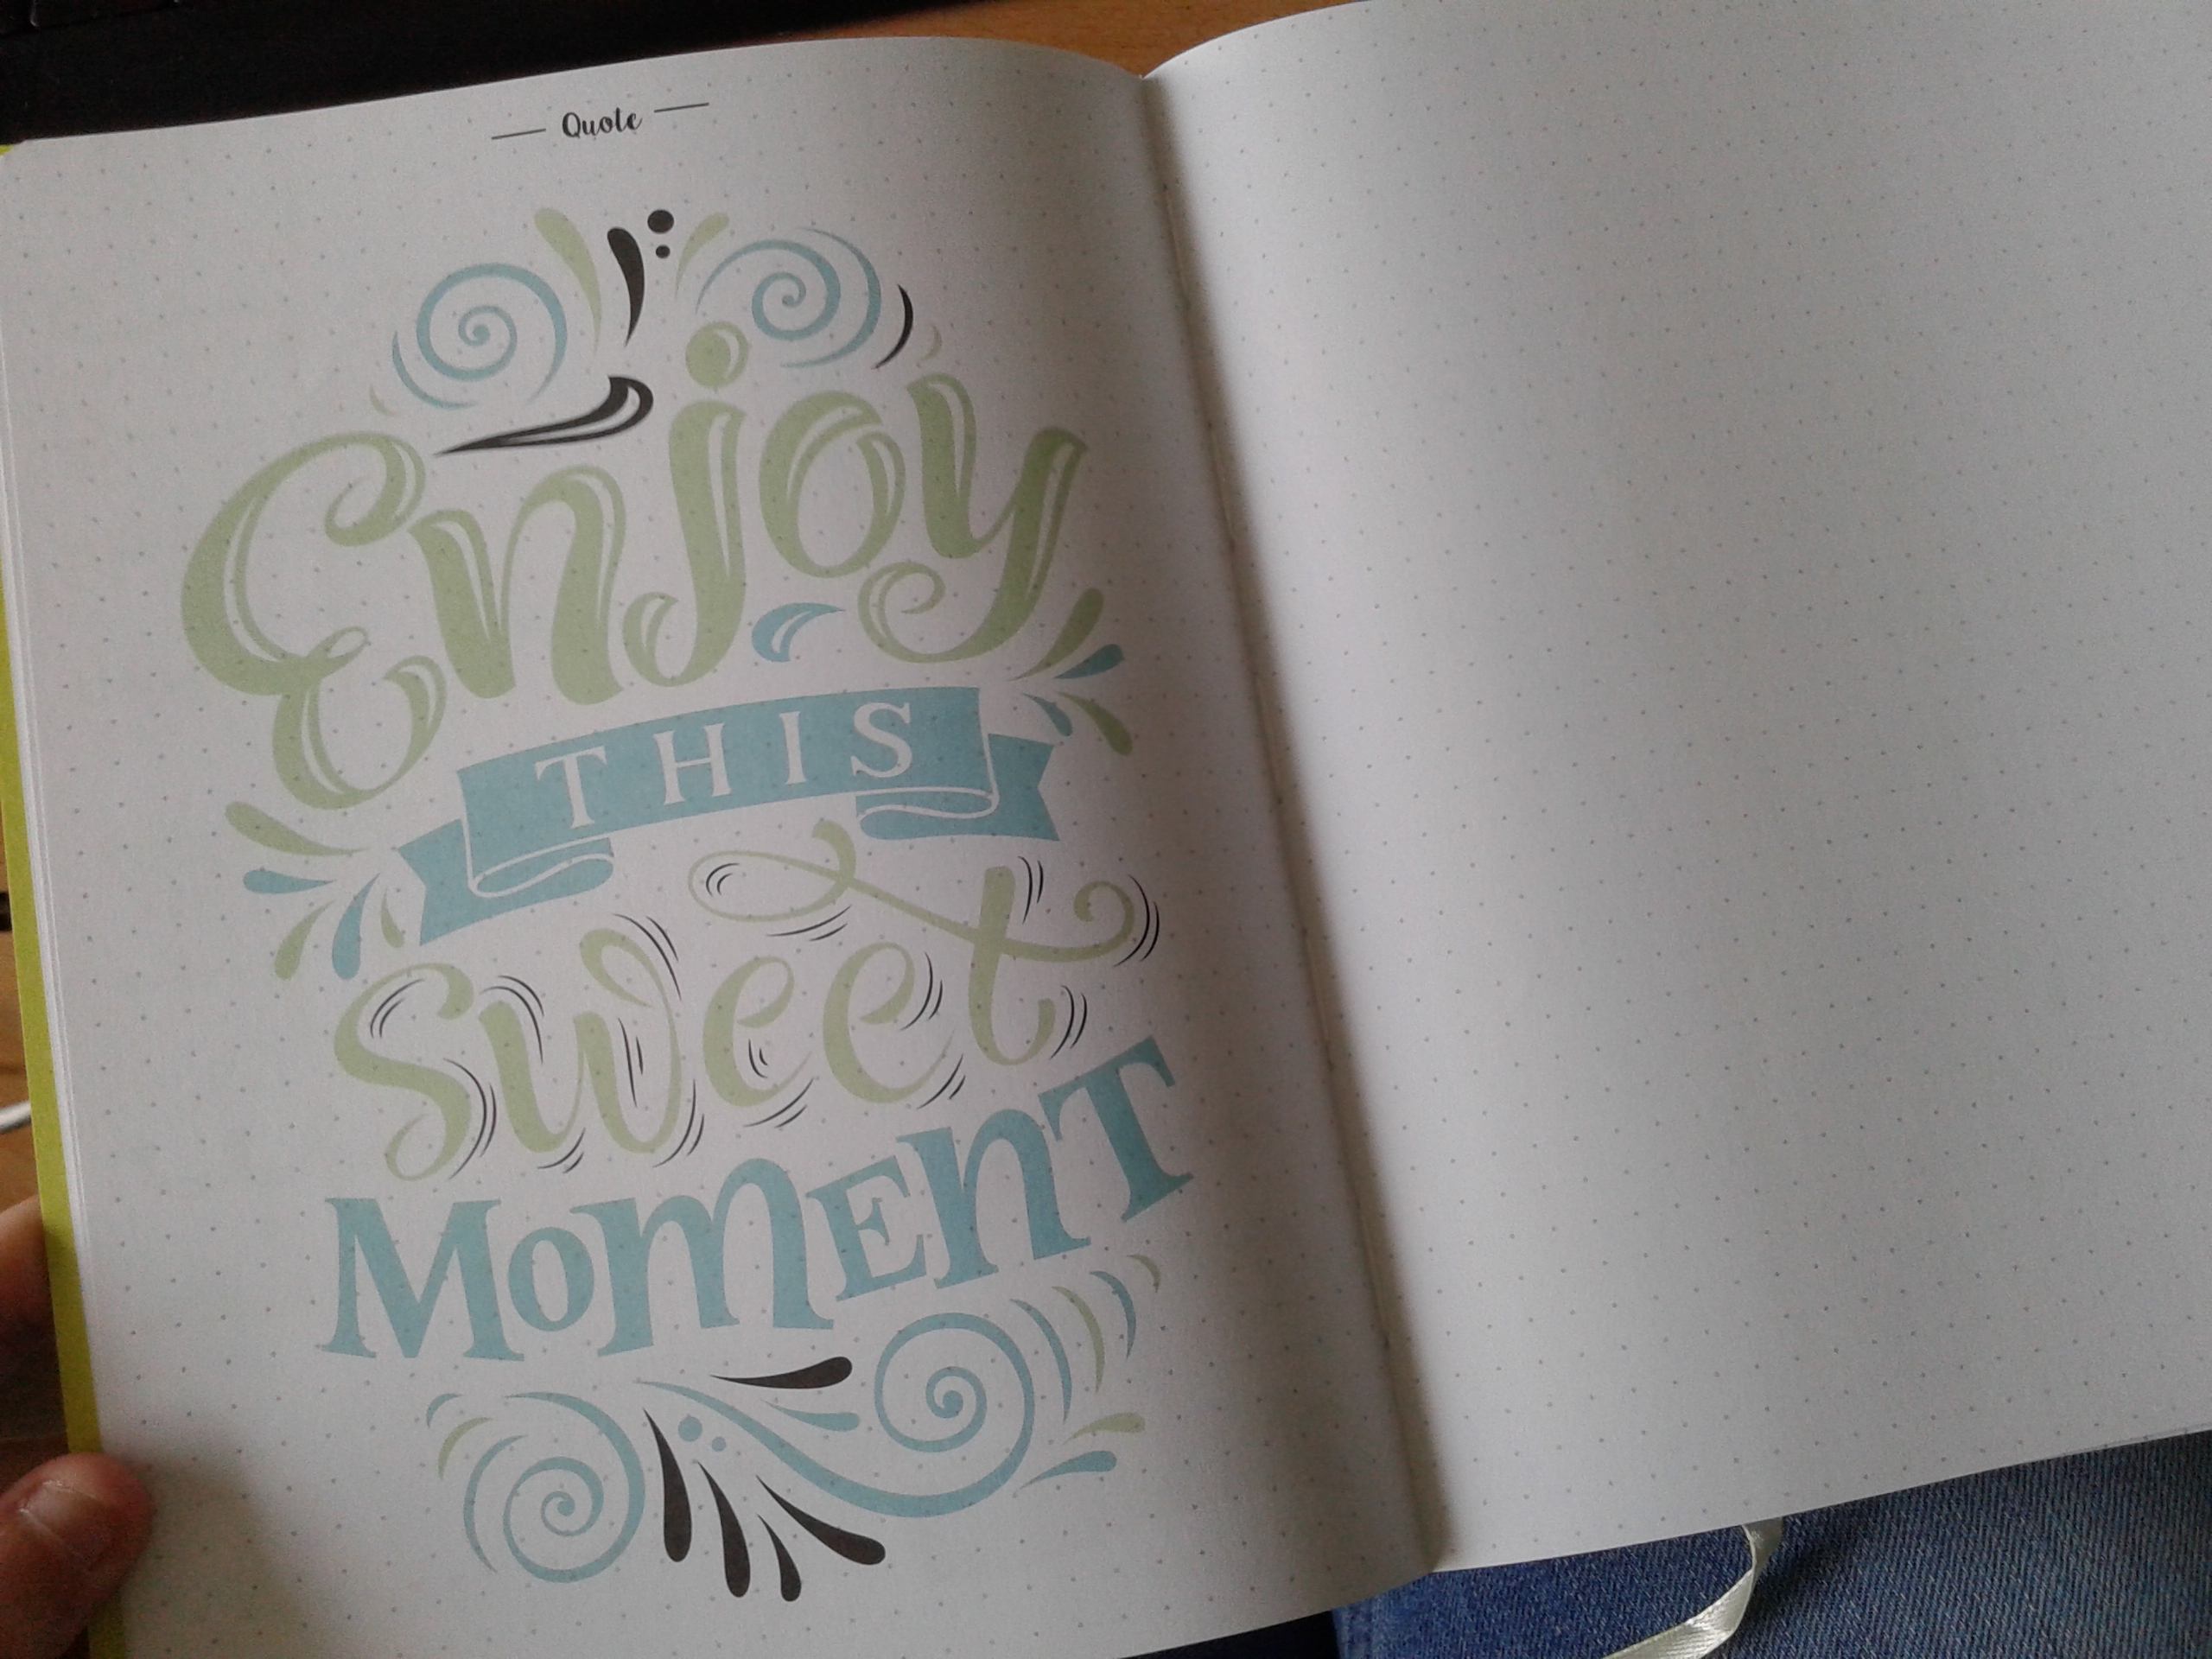 Quote
Enjoy
THIS
sweet
MoMENT